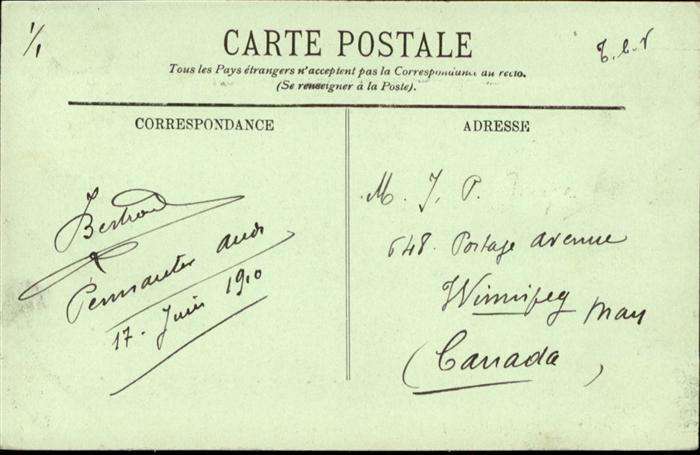 1/1
CARTE POSTALE
T.C.V
Tous les Pays étrangers n'acceptent pas la Correspondance au recto.
(Se renseigner à la Poste).
CORRESPONDANCE
ADRESSE
Bertrand
Pennautier Aude
17. Juin 1910
M. J. P.
648. Portage avenue
Winnipeg Man
(Canada)